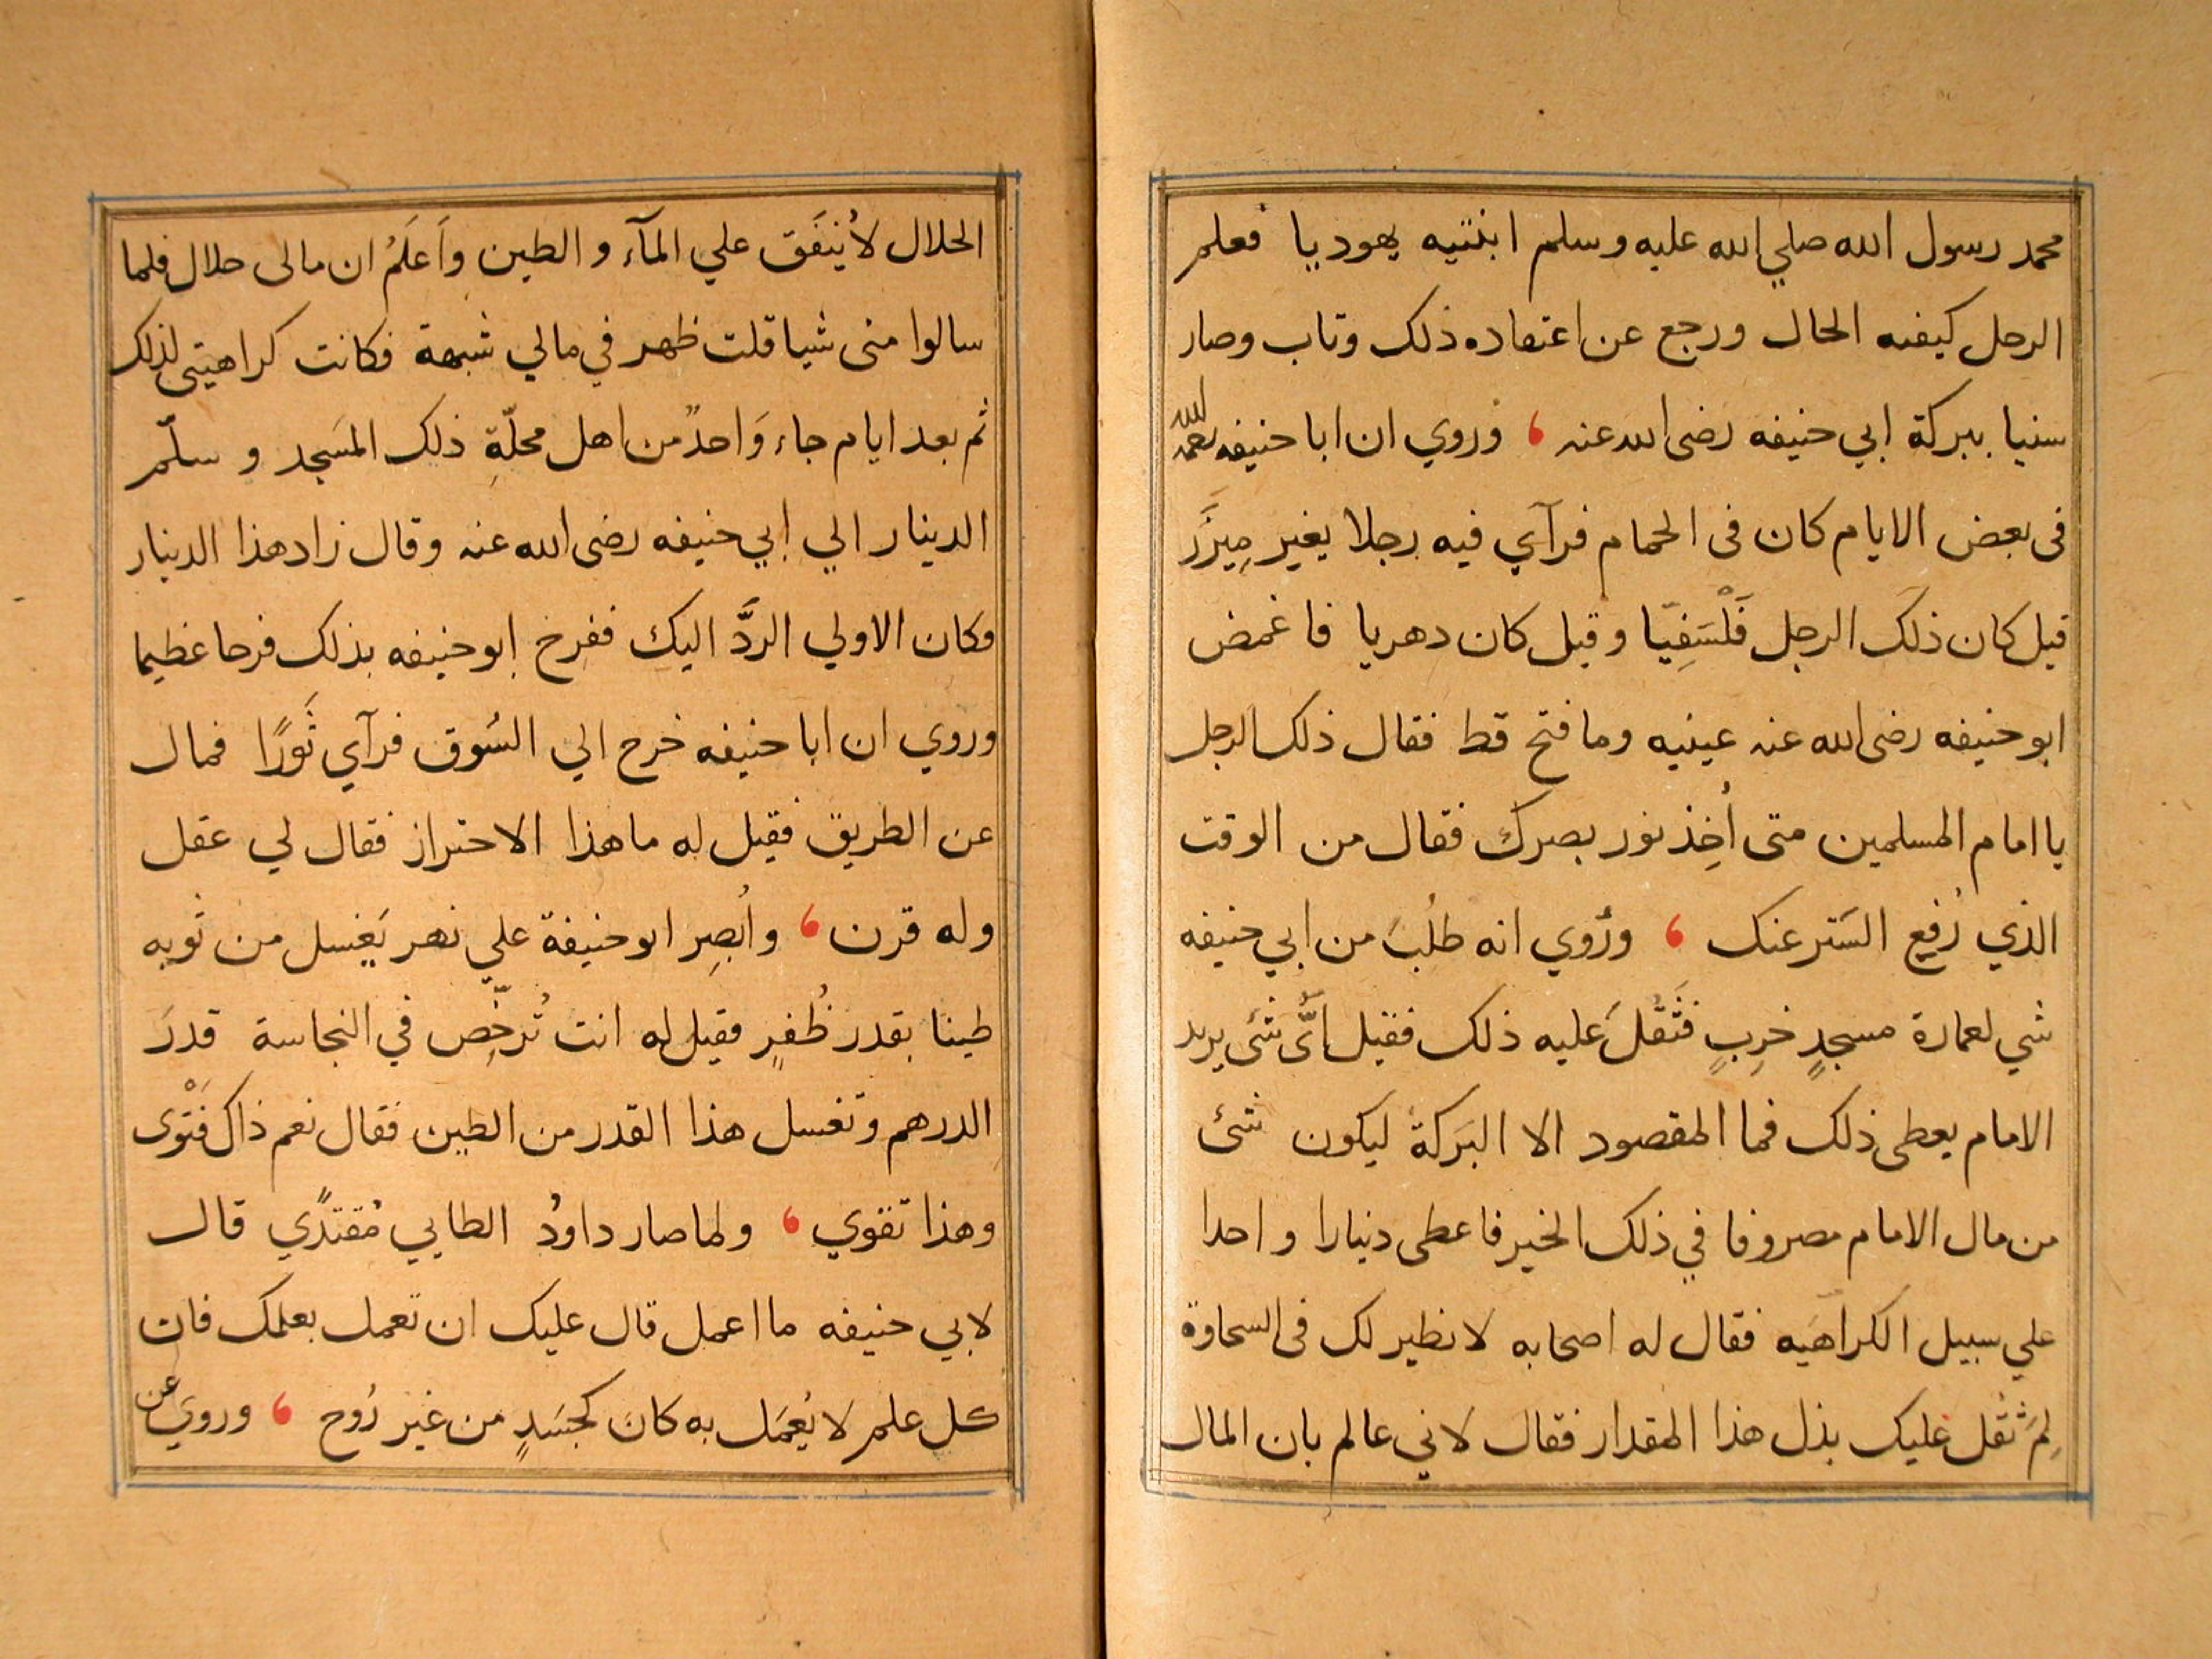 محمد رسول الله صلي الله عليه وسلم ابنتيه يهوديا فعلم
الرجل كيفيه الحال ورجع عن اعتقاده ذلك وتاب وصار
سنيا ببركة ابي حنيفه رضى الله عنه ، وروي ان ابا حنيفه رحمه الله
فى بعض الايام كان فى الحمام فرآي فيه رجلا بغير مِيزَر
قيل كان ذلَك الرجل فَلْسَفِيّا وقيل كان دهريا فاغمض
ابو حنيفه رضى الله عنه عينيه وما فتح قط فقال ذلك الرجل
يا امام المسلمين متى اُخِذ نور بصرك فقال من الوقت
الذي رُفِع السَتر عنك ، ورُوي انه طلُبَ من ابي حنيفه
شي لعمارة مسجدٍ خرِبٍ فثَقُلَ عليه ذلك فقيل اىَّ شَى يريد
الامام يعطى ذلك فما المقصود الا البَركة ليكون شئ
من مال الامام مصروفا في ذلك الخير فاعطى دنيارا واحدا
علي سبيل الكراهَيه فقال له اصحابه لا نظير لك فى السخاوة
لِمَ ثقُل عليك بذل هذا المقدار فقال لاني عالم بان المال
الحلال لاُ ينفَق علي المآء والطين واَعلَمُ ان مالى حلال فلما
سالوا منى شيا قلت ظهر في مالي شبهة فكانت كراهيتى لذلك
ثم بعد ايام جاء وَاحدٌ من اهل محلّةِ ذلك المسَجد و سلّم
الدينار الي ابي حنيفه رضى الله عنه وقال زاد هذا الدينار
وكان الاولي الردَّ اليك ففرِح ابو حنيفه بذلك فرحا عظيما
وروي ان ابا حنيفه خرج الي السُوق فرآي ثَورًا فمال
عن الطريق فقيل له ما هذا الاحتراز فقال لي عقل
وله قرن ، واُبصِر ابو حنيفة علي نهر يَغسل من ثوبه
طينا بقدر ظُفرٍ فقيل له انت تُرخِّص في النجاسة قدرَ
الدرهم وتغسل هذا القدر من الطين فقال نعم ذاك فَتْوى
وهذا تقوي ، ولما صار داودُ الطايي مُقتدًي قال
لابي حنيفه ما اعمل قال عليك ان تعمل بعلمك فان
كل علم لا يُعمَل به كان كجسَدٍ من غير رُوح ، ورويَ عن